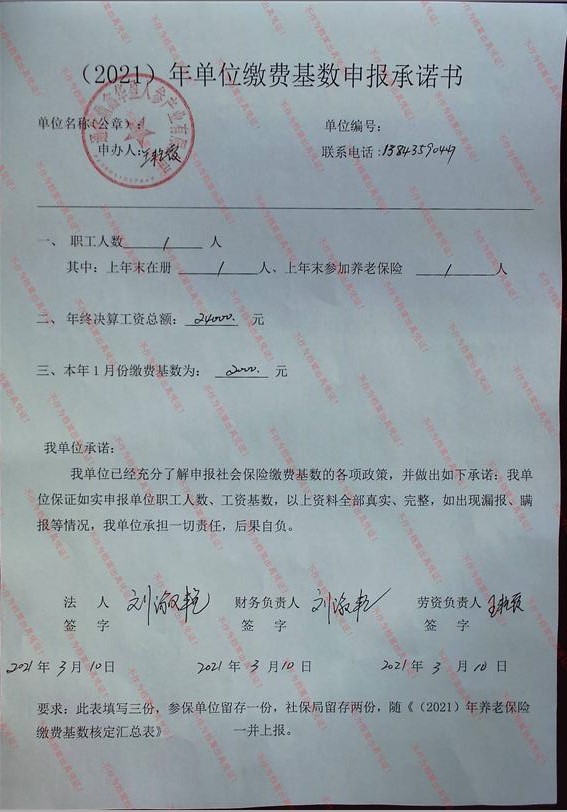 （2021）年单位缴费基数申报承诺书
单位名称（公章）： 单位编号：
申办人： 联系电话：
一、 职工人数 1 人
其中：上年末在册 1 人、上年末参加养老保险 1 人
二、年终决算工资总额： 24000. 元
三、本年1月份缴费基数为： 2000. 元
我单位承诺：
我单位已经充分了解申报社会保险缴费基数的各项政策，并做出如下承诺：我单
位保证如实申报单位职工人数、工资基数，以上资料全部真实、完整，如出现漏报、瞒
报等情况，我单位承担一切责任，后果自负。
法 人 财务负责人 劳资负责人
签 字 签 字 签 字
2021年3月10日 2021年3月10日 2021年3月10日
要求：此表填写三份，参保单位留存一份，社保局留存两份，随《（2021）年养老保险
缴费基数核定汇总表》 一并上报。